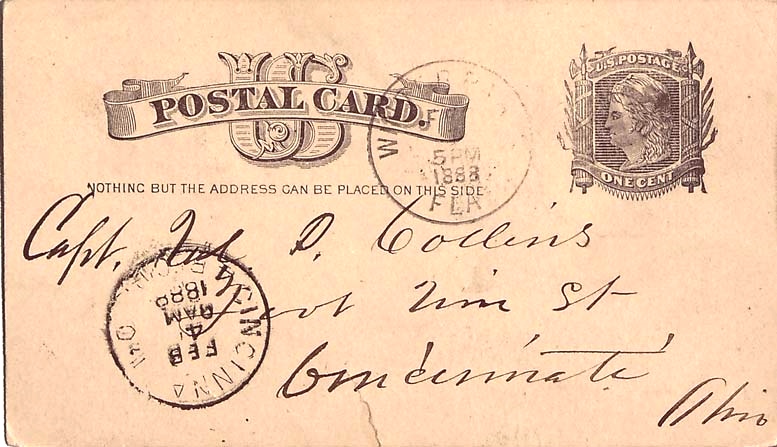 US
POSTAL CARD.
U.S. POSTAGE
ONE CENT
NOTHING BUT THE ADDRESS CAN BE PLACED ON THIS SIDE
5 PM
1888
FLA
Capt. P. Collins
Foot Vine St
Cincinnati
Ohio
CINCINNA O
FEB
4
AM
1888